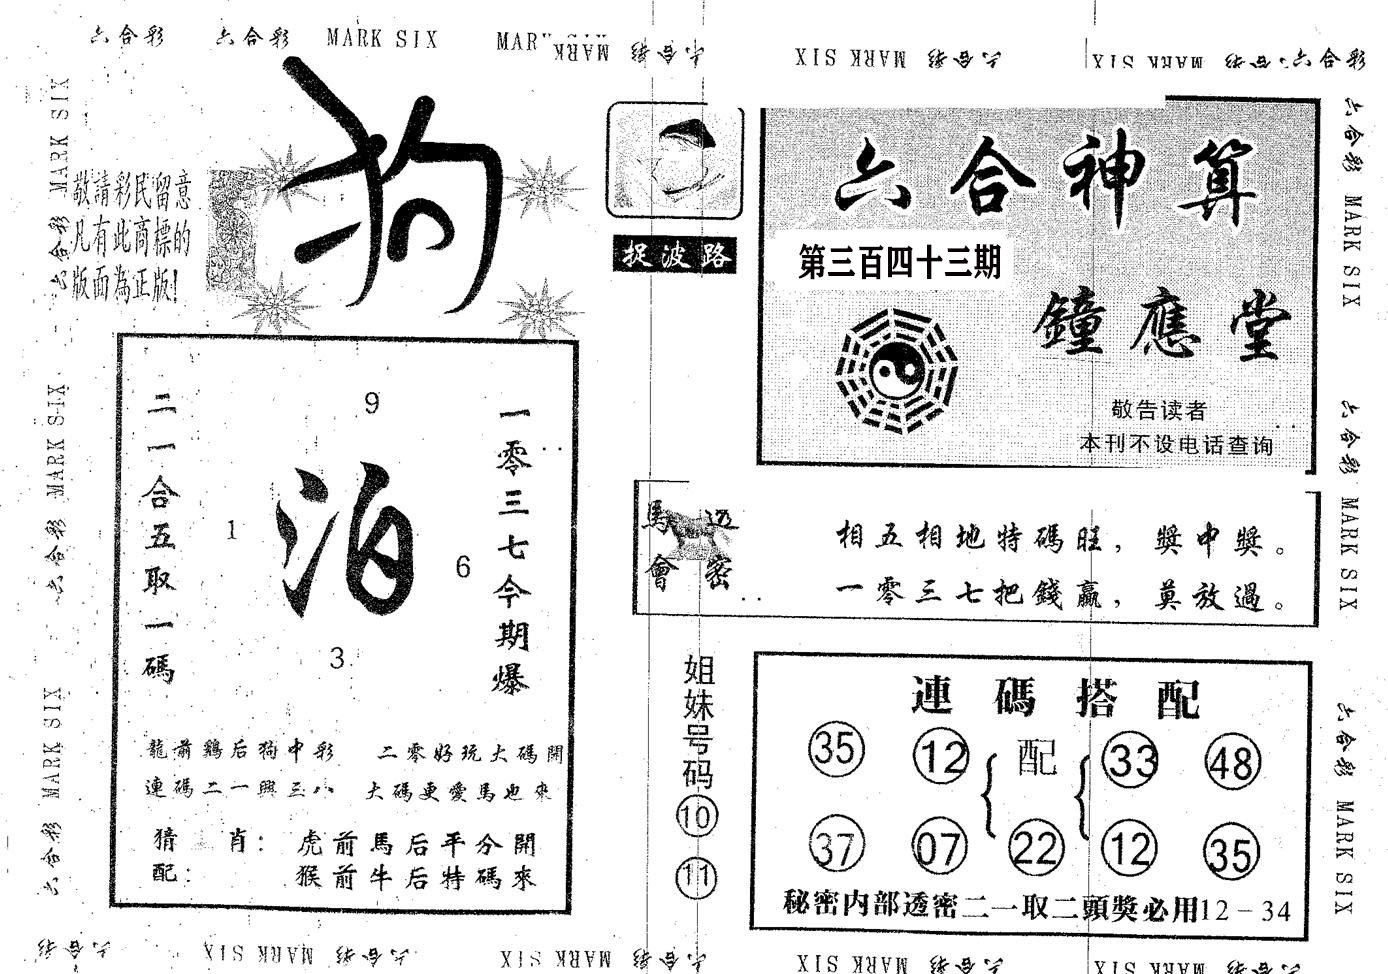 六合彩 六合彩 MARK SIX MARK SIX 六合彩 MARK SIX 六合彩 MARK SIX 六合彩
狗
敬請彩民留意
凡有此商標的
版面為正版!
捉波路
六合神算
第三百四十三期
鐘應堂
敬告读者
本刊不设电话查询
二一合五取一碼
9
1
泊
6
3
一零三七今期爆
龍前鷄后狗中彩 二零好玩大碼開
連碼二一興三八 大碼更愛馬也來
猜肖: 虎前馬后平分開
配: 猴前牛后特碼來
馬會
透密
相五相地特碼旺,獎中獎。
一零三七把錢贏,莫放過。
姐妹号码
10
11
連碼搭配
35 12 配 33 48
37 07 22 12 35
秘密内部透密二一取二頭獎必用12-34
六合彩 MARK SIX 六合彩 MARK SIX 六合彩 MARK SIX
六合彩 MARK SIX 六合彩 MARK SIX 六合彩 MARK SIX
六合彩 MARK SIX 六合彩 MARK SIX 六合彩 MARK SIX 六合彩 MARK SIX 六合彩